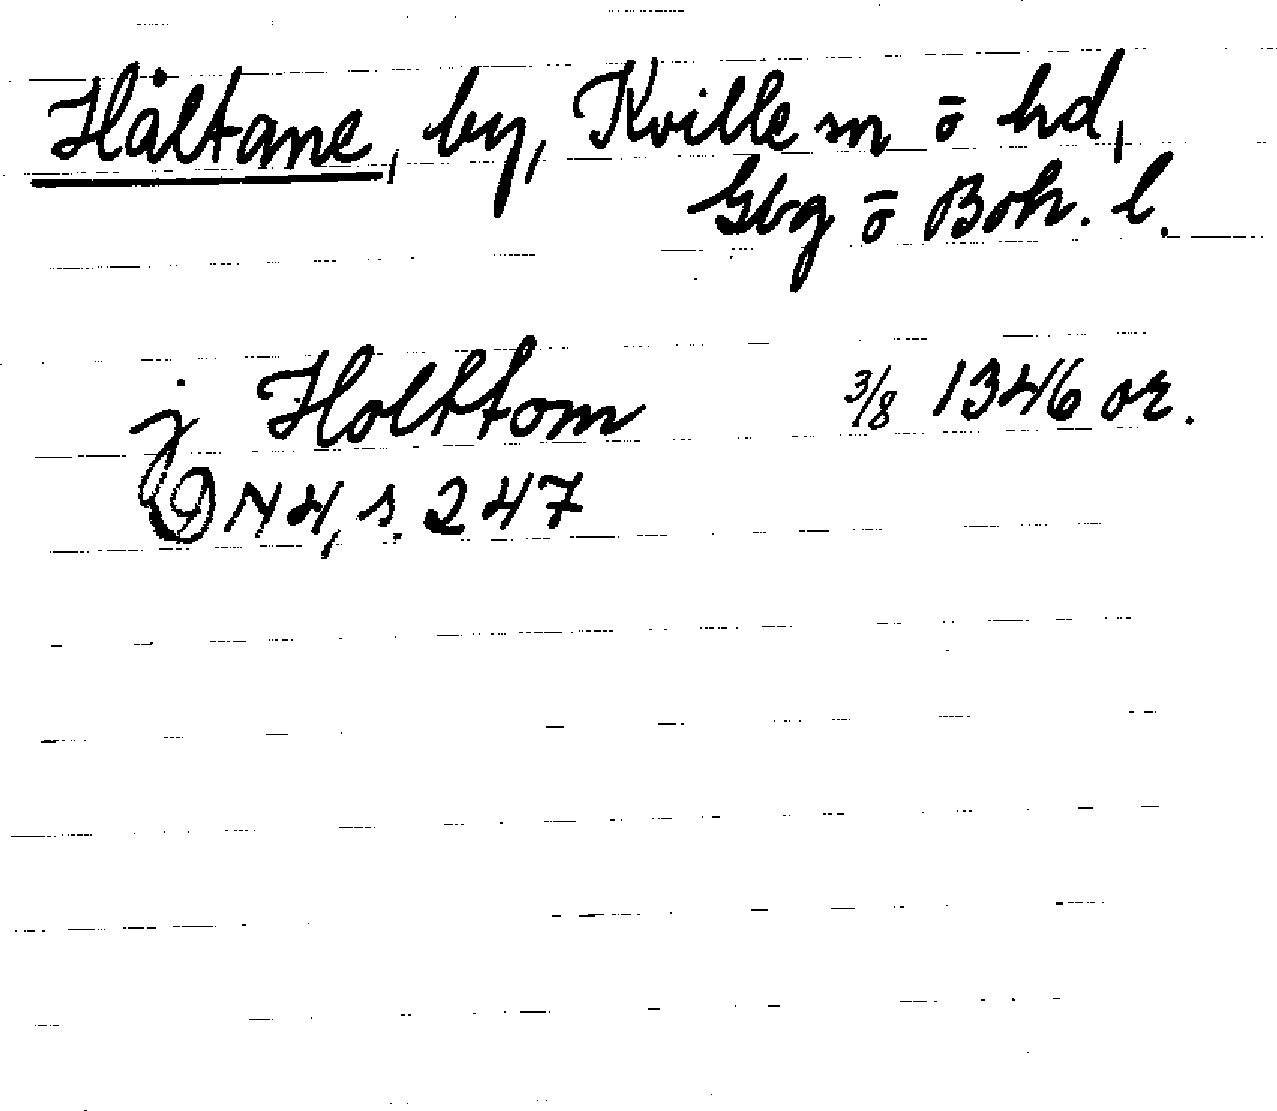 Håltane, by, Kville sn ō hd,
Gbg ō Boh. l.
j Holttom 3/8 1346 or.
DN 4, s. 247